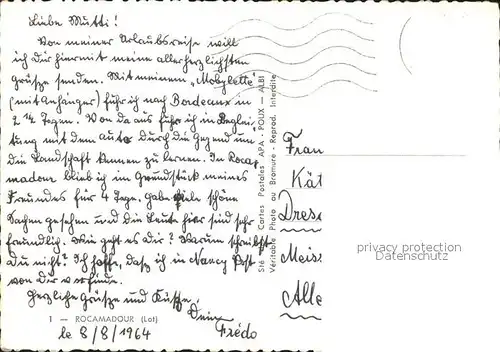 Liebe Mutti!
Von meiner Urlaubsreise will
ich dir hiermit meine allerherzlichsten
Grüsze senden. Mit meinem „Mobylette"
(mit Anhänger) fuhr ich nach Bordeaux in
2 ½ Tagen. Von da aus fuhr ich in Beglei-
tung mit dem Auto durch die Gegend um
die Landschaft kennen zu lernen. In Roca-
madour blieb ich im Grundstück meines
Freundes für 4 Tage. Habe viele schöne
Sachen gesehen und die Leute hier sind sehr
freundlich. Wie geht es dir? Warum schreibst
du nicht? Ich hoffe, dasz ich in Nancy Post
von dir vorfinde.
Herzliche Grüsze und Küsse,
Dein
Frédo
1 — ROCAMADOUR (Lot)
le 8/8/1964
Sté des Cartes Postales APA - POUX — ALBI
Véritable Photo au Bromure - Reprod. Interdite
Frau
Kät
Dresd
Meis
Alle
privacy protection
Datenschutz